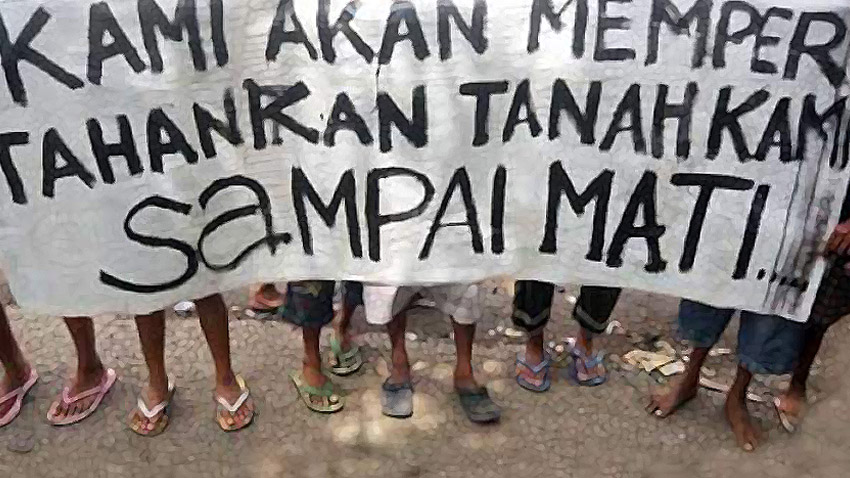 KAMI AKAN MEMPER
TAHANKAN TANAH KAMI
SaMPAI MATI.....